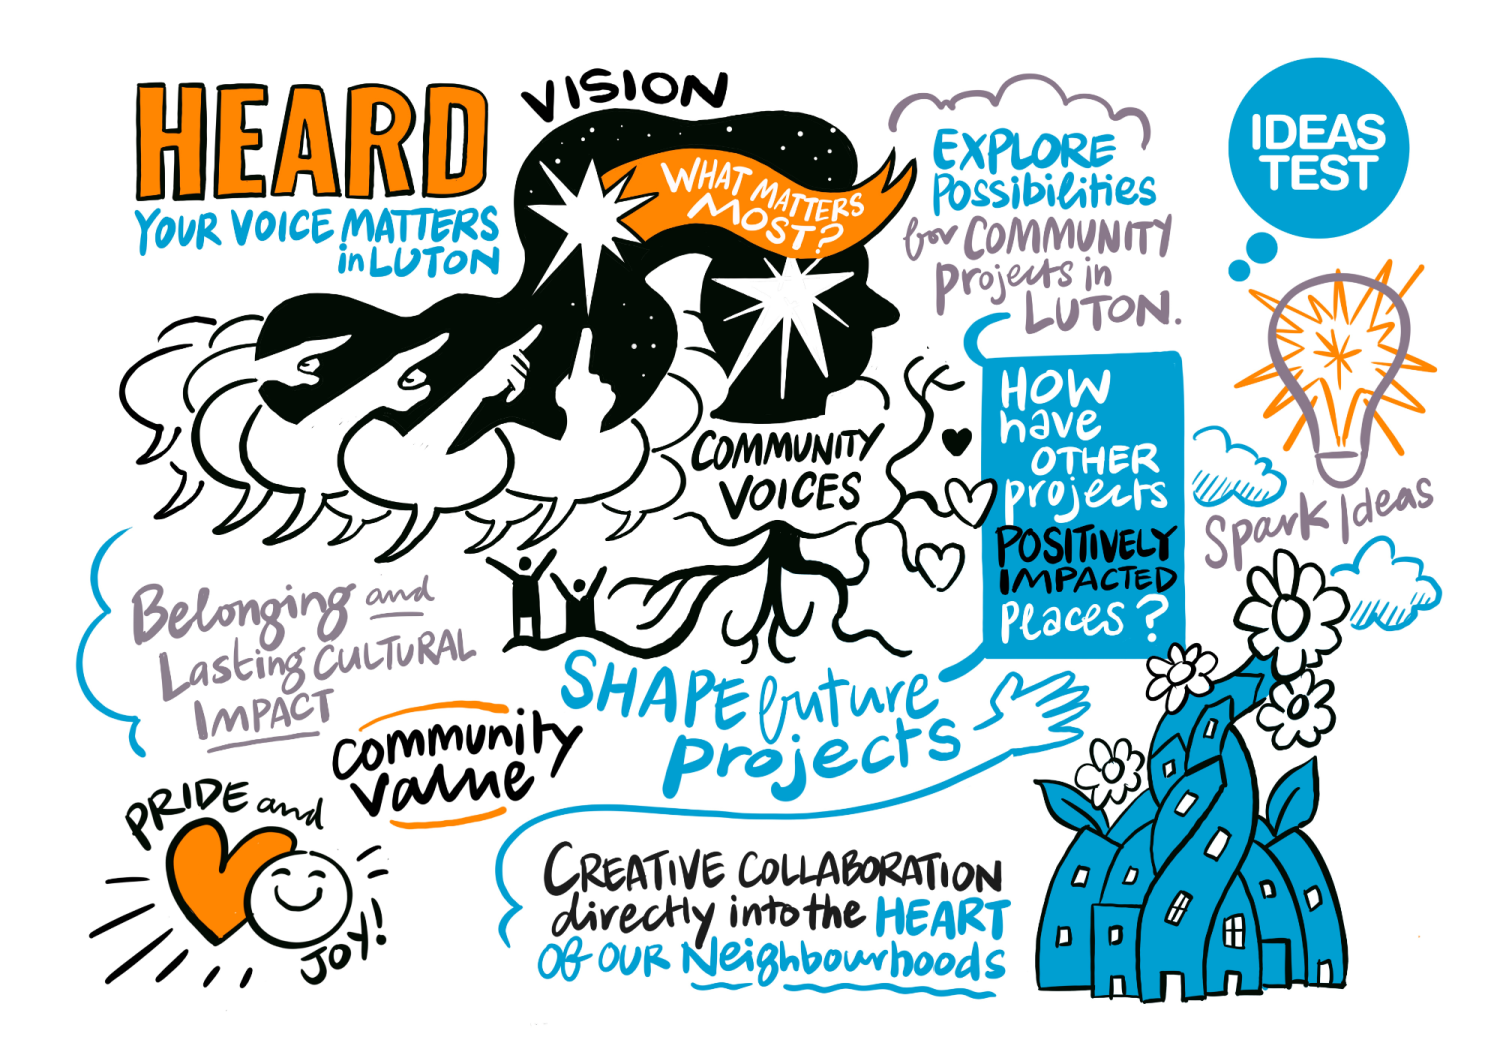 HEARD
YOUR VOICE MATTERS
in LUTON
VISION
WHAT MATTERS
MOST?
EXPLORE
Possibilities
for COMMUNITY
Projects in
LUTON.
IDEAS
TEST
HOW
have
OTHER
projects
POSITIVELY
IMPACTED
Places?
Spark Ideas
COMMUNITY
VOICES
Belonging and
Lasting CULTURAL
IMPACT
SHAPE future
projects
Community
Value
PRIDE and
JOY!
CREATIVE COLLABORATION
directly into the HEART
OF OUR Neighbourhoods